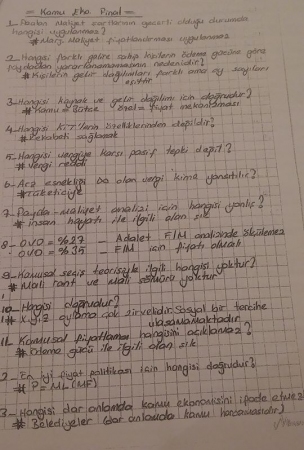 = Kamu Eko. Final =
1- Azalan Maliyet şartlarının geçerli olduğu durumda
hangisi uygulanmaz?
# Marj. Maliyet fiyatlandırması uygulanmaz
2- Hangisi farklı gelire sahip kişilerin ödeme gücüne göre
faydadan yararlanamamasının nedenidir?
# Kişilerin gelir dağılımları farklı ama oy sayıları
eşittir
3- Hangisi kaynak ve gelir dağılımı için doğrudur?
# Kamu = Bütçe Özel = Fiyat mekanizması
4- Hangisi KİT'lerin özelliklerinden değildir?
# Rekabeti sağlamak
5- Hangisi vergiye karşı pasif tepki değil?
# Vergi reddi
6- Arz esnekliği 0 olan vergi kime yansıtılır?
# Tüketiciye
7- Fayda-maliyet analizi için hangisi yanlış?
# insan hayatı ile ilgili olan şık
8- OVO = %27 - Adalet F/M analizinde ölçülemez
- OVO = %35 - F/M için fiyatı olmalı
9- Kamusal seçiş teorisiyle ilgili hangisi yoktur?
# Mali rant ve mali sömürü yoktur
10- Hangisi doğrudur?
# x,y,z oylama çok zirvelidir. Sosyal bir tercihe
ulaşamamaktadır
11- Kamusal fiyatlama hangisini açıklamaz?
# ödeme gücü ile ilgili olan şık
2- En iyi fiyat politikası için hangisi doğrudur?
# P = ML (MF)
3- Hangisi dar anlamda kamu ekonomisini ifade etmez
# Belediyeler (dar anlamda kamu harcamasıdır)